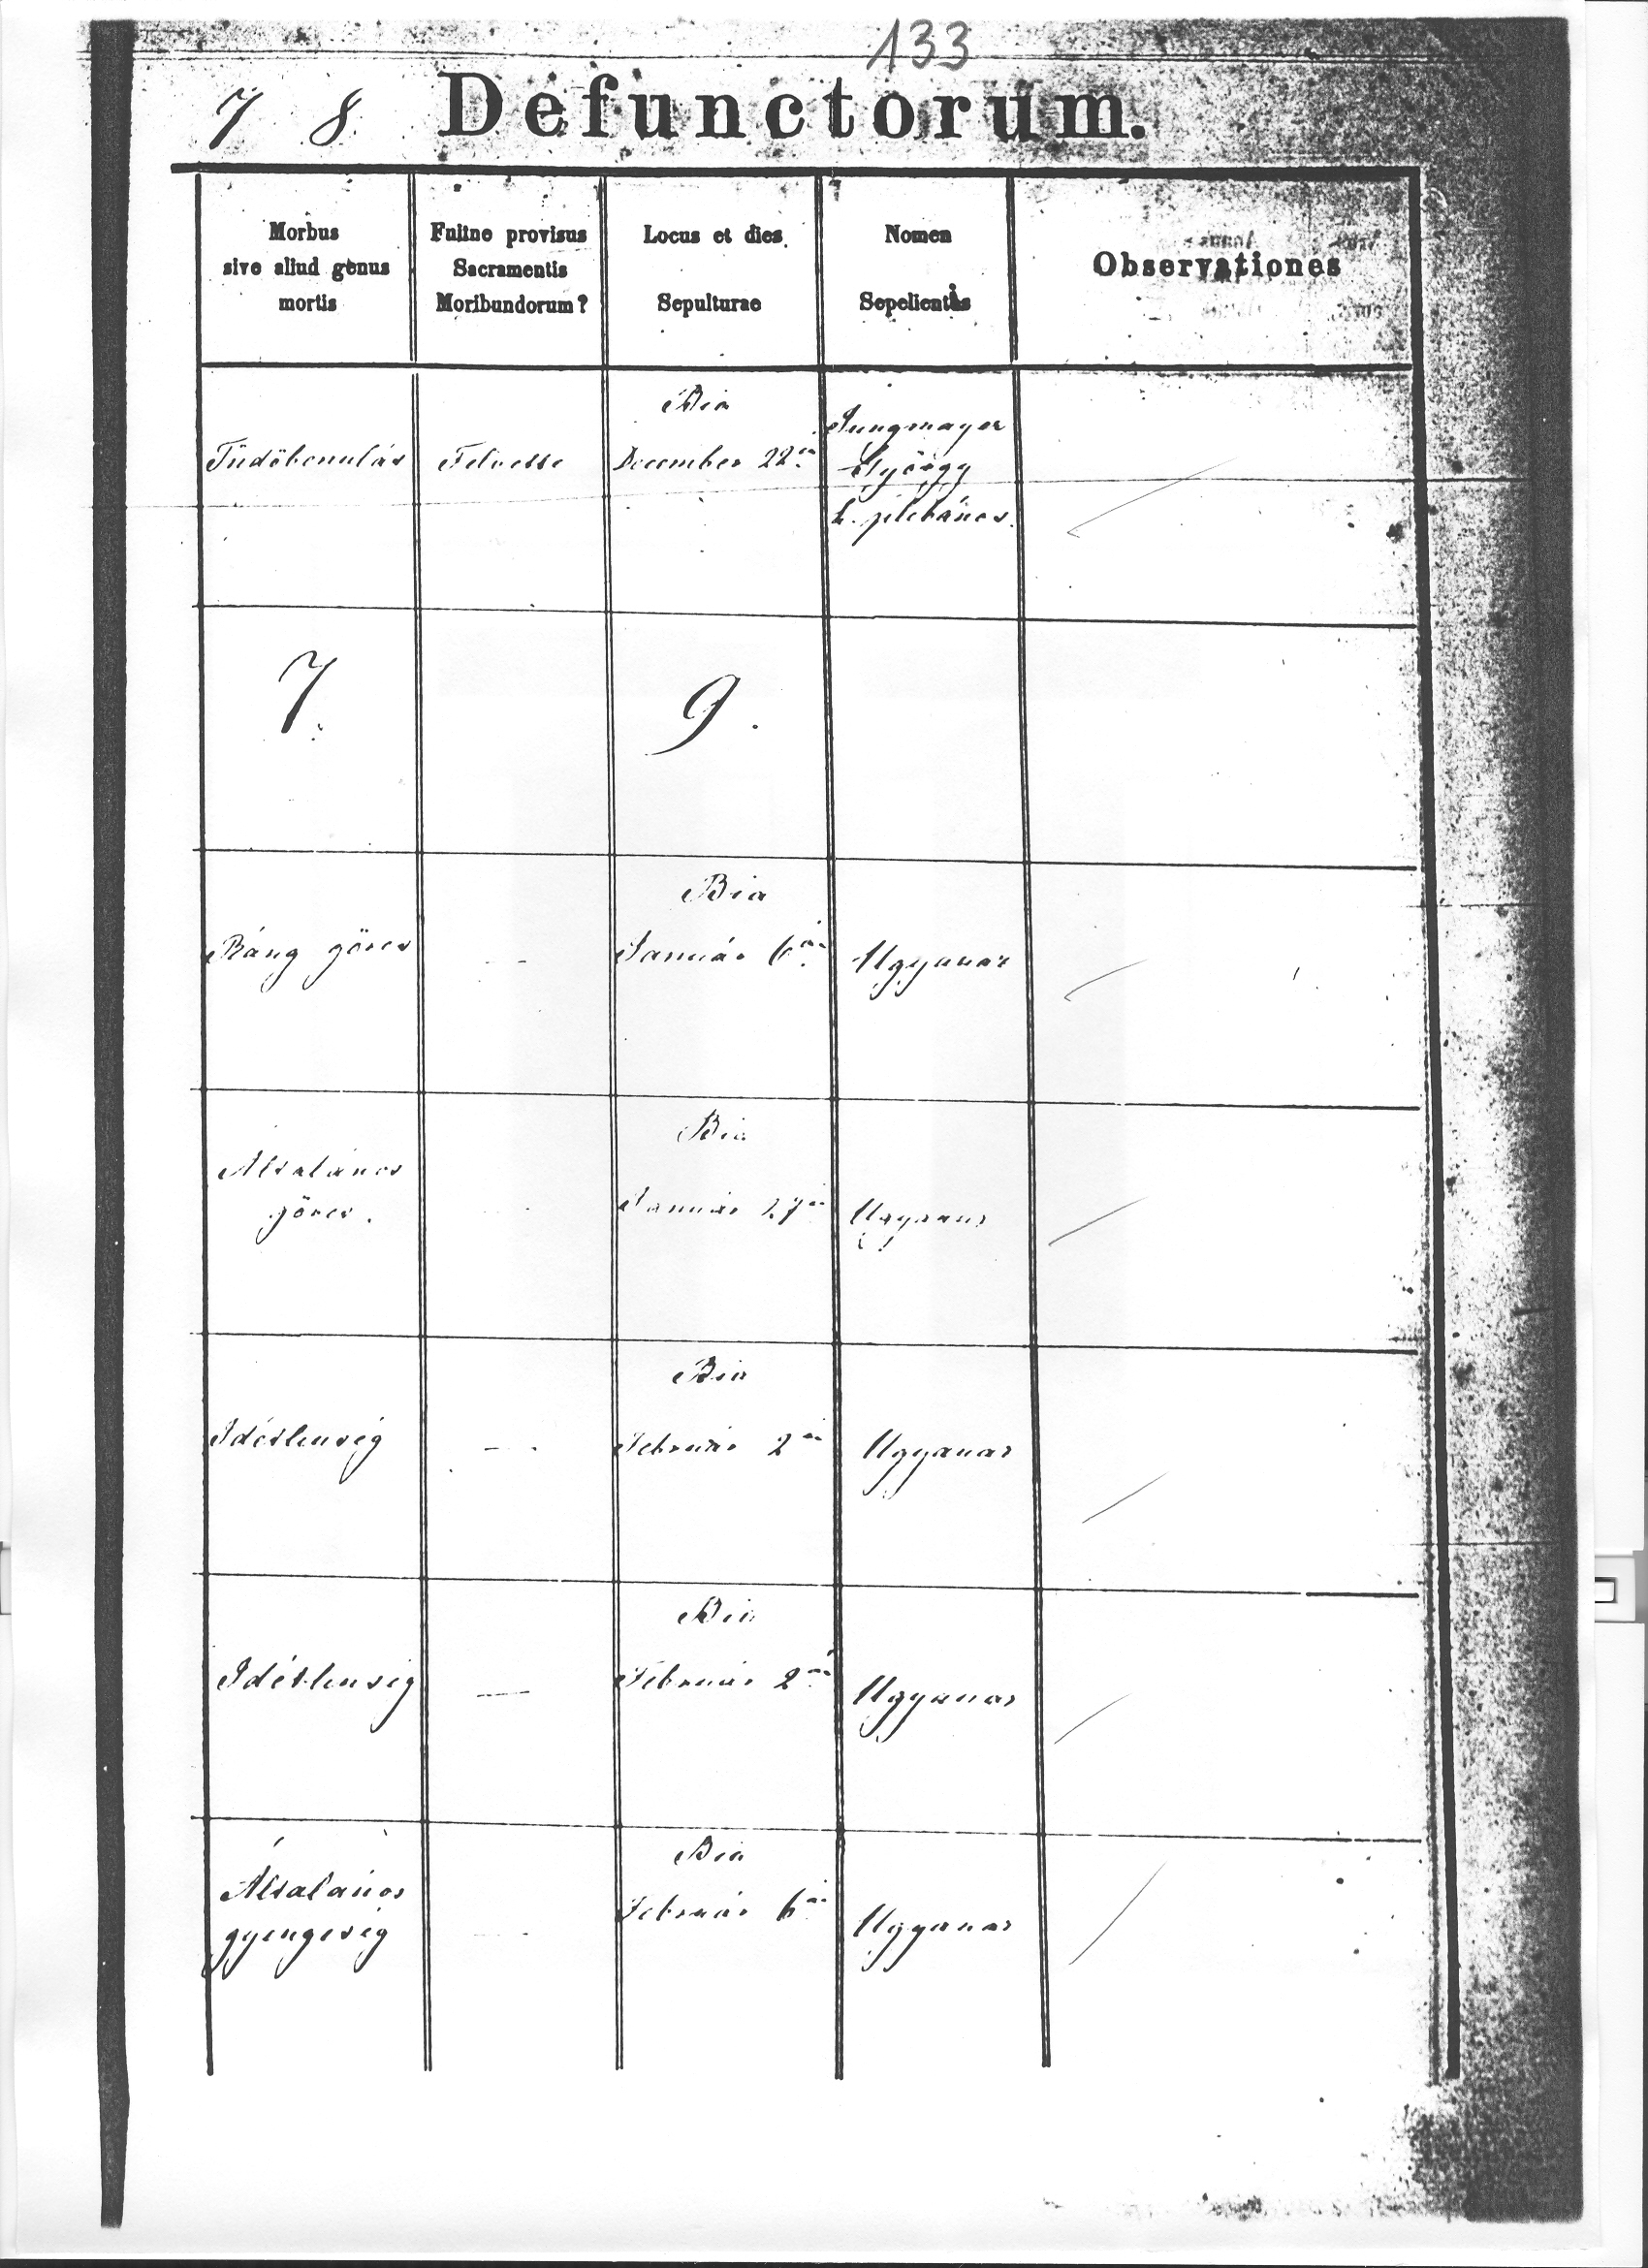 133
7 8. Defunctorum.
Morbus
sive aliud genus
mortis
Fuitne provisus
Sacramentis
Moribundorum?
Locus et dies
Sepulturae
Nomen
Sepelientis
Observationes
Tüdőbénulás
Felvette
Bia
December 22én
Jungmayer
György
h. plébános.
7. 9.
Ráng görcs
Bia
Január 6án
Ugyanaz
Általános
görcs.
Bia
Január 27én
Ugyanaz
Idétlenség
Bia
Február 2án
Ugyanaz
Idétlenség
Bia
Február 2án
Ugyanaz
Általános
gyengeség
Bia
Február 6án
Ugyanaz